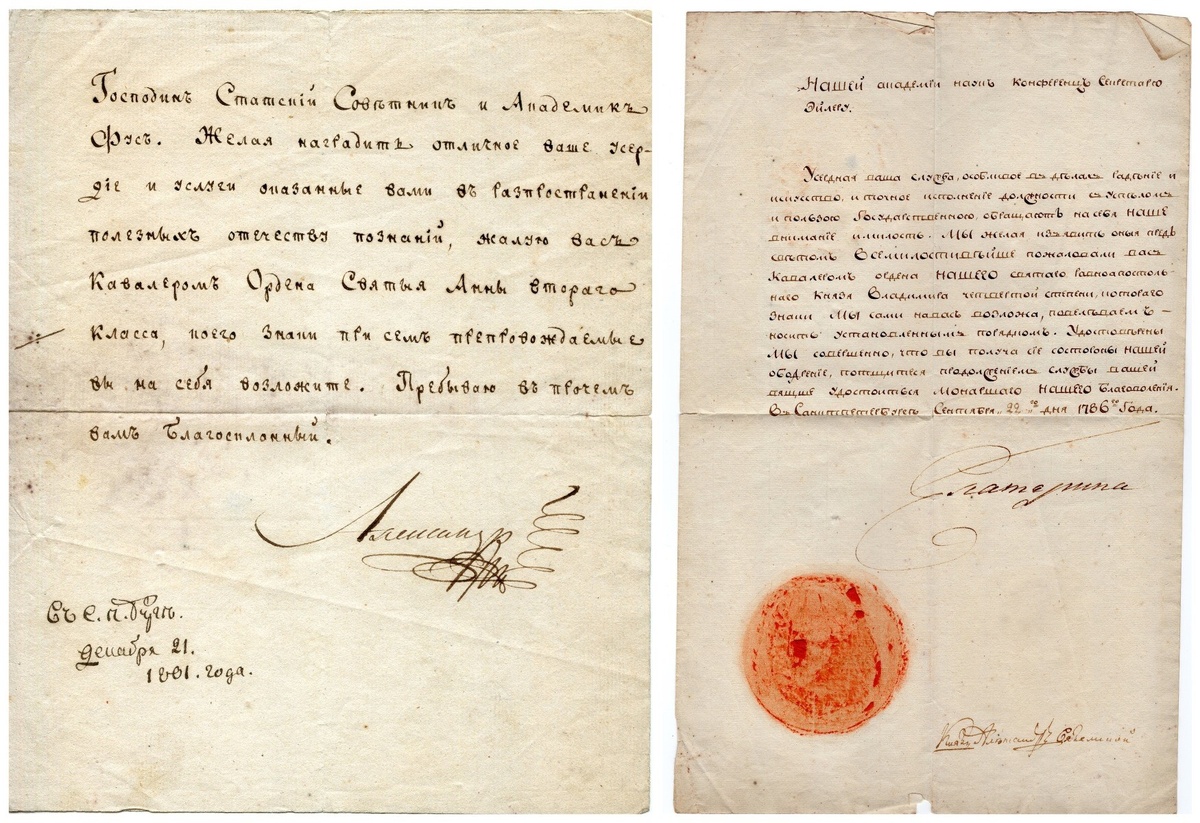 Господинъ Статскій Совѣтникъ и Академикъ
Фусъ. Желая наградить отличное ваше усер-
діе и услуги оказанные вами въ разпространеніи
полезныхъ отечеству познаній, жалую васъ
Кавалеромъ Ордена Святыя Анны втораго
класса, коего Знаки при семъ препровождаемые
вы на себя возложите. Пребываю въ прочемъ
вамъ Благосклонный.
Александръ
Съ С. П. Бургъ.
декабря 21.
1801. года.
Нашей академіи наукъ Конференцъ Секретарю
Эйлеру.
Усердная ваша служба, особливое въ дѣлахъ радѣніе и
искусство, и точное исполненіе должности съ успѣхомъ
и пользою Государственною, обращаютъ на себя НАШЕ
вниманіе и милость. МЫ желая изъявить оныя предъ
свѣтомъ Всемилостивѣйше пожаловали васъ
Кавалеромъ ордена НАШЕГО святаго равноапостоль-
наго Князя Владимира четвертой степени, котораго
знаки МЫ сами на васъ возложа, повелѣваемъ
носить установленнымъ порядкомъ. Удостовѣрены
МЫ совершенно, что вы получа сіе со стороны НАШЕЙ
ободреніе, потщитеся продолженіемъ службы вашей
вящще удостоиться Монаршаго НАШЕГО Благоволенія.
Въ Санктпетербургѣ Сентября 22го дня 1786го Года.
Екатерина
Князь Александръ